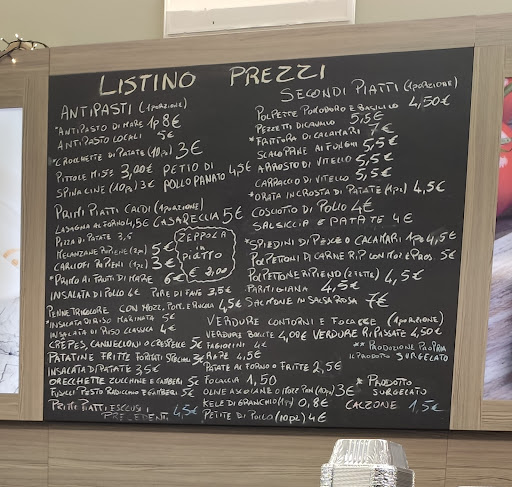 LISTINO PREZZI
ANTIPASTI (1 PORZIONE)
*ANTIPASTO DI MARE 1P 8€
ANTIPASTO LOCALI 5€
*CROCCHETTE DI PATATE (10pz) 3€
PITTOLE MISTE 3,00€
SPINACINE (10pz) 3€
PETTO DI POLLO PANATO 4,5€
PRIMI PIATTI CALDI (1 PORZIONE)
LASAGNA AL FORNO 4,5€ CASARECCIA 5€
PIZZA DI PATATE 3,5
MELANZANE RIPIENE (2pz) 5€
CARCIOFI RIPIENI (1pz) 3€
*PRIMO AI FRUTTI DI MARE 6€
INSALATA DI POLLO 4€ PURE DI FAVE 3,5€
ZEPPOLA
in
PIATTO
€ 2,00
PENNE TRICOLORE CON MOZZ, POM, E RUCOLA 4,5€
*INSALATA DI RISO MARINATA 5€
INSALATA DI RISO CLASSICA 4€
CREPES, CANNELLONI O CRESPELLE 5€
PATATINE FRITTE 3€
INSALATA DI PATATE 3,5€
ORECCHIETTE ZUCCHINE E GAMBERI 5€
FUSILLI PESTO RADICCHIO E GAMBERI 5€
PRIMI PIATTI ESCLUSI I
PRECEDENTI 4,5€
SECONDI PIATTI (1 PORZIONE)
POLPETTE POMODORO E BASILICO 4,50€
PEZZETTI DI CAVALLO 5,5€
*FRITTURA DI CALAMARI 7€
SCALOPPINE AI FUNGHI 5,5€
ARROSTO DI VITELLO 5,5€
CARPACCIO DI VITELLO 5,5€
*ORATA IN CROSTA DI PATATE (1pz) 4,5€
COSCIOTTO DI POLLO 4€
SALSICCIA E PATATE 4€
*SPIEDINI DI PESCE O CALAMARI 1PO 4,5€
POLPETTONI DI CARNE RIP CON MOZ E PROS. 5€
POLPETTONE RIPIENO (2 FETTE) 4,5€
PARMIGIANA 4,5€
SALMONE IN SALSA ROSA 7€
VERDURE CONTORNI E FOCACCE (1 PORZIONE)
VERDURE BOLLITE 4,00€ VERDURE RIPASSATE 4,50€
FAGIOLINI 4€
RAPE 4,5€
PATATE AL FORNO O FRITTE 2,5€
FOCACCIA 1,50
OLIVE ASCOLANE O MOZZ PAN (10pz) 3€
KELE DI GRANCHIO (1pz) 0,8€
PEPITE DI POLLO (10pz) 4€
** PRODUZIONE PROPRIA
IL PRODOTTO SURGELATO
* PRODOTTO
SURGELATO
CALZONE 1,5€